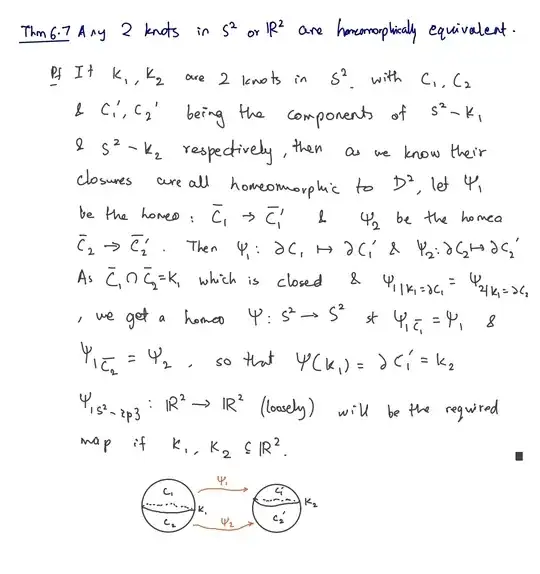 Thm 6.7 Any 2 knots in S² or ℝ² are homeomorphically equivalent.
Pf If K₁, K₂ are 2 knots in S². with C₁, C₂
& C₁', C₂' being the components of S² - K₁
& S² - K₂ respectively, then as we know their
closures are all homeomorphic to D², let Ψ₁
be the homeo : C̄₁ → C̄₁' & Ψ₂ be the homeo
C̄₂ → C̄₂'. Then Ψ₁ : ∂C₁ ↦ ∂C₁' & Ψ₂ : ∂C₂ ↦ ∂C₂'
As C̄₁ ∩ C̄₂ = K₁ which is closed & Ψ₁|K₁=∂C₁ = Ψ₂|K₁=∂C₂
, we get a homeo Ψ : S² → S² st Ψ|C̄₁ = Ψ₁ &
Ψ|C̄₂ = Ψ₂ , so that Ψ(K₁) = ∂C₁' = K₂
Ψ|S²-{p} : ℝ² → ℝ² (loosely) will be the required
map if K₁, K₂ ⊆ ℝ².
C₁ Ψ₁ C₁'
K₁ K₂
C₂ Ψ₂ C₂'